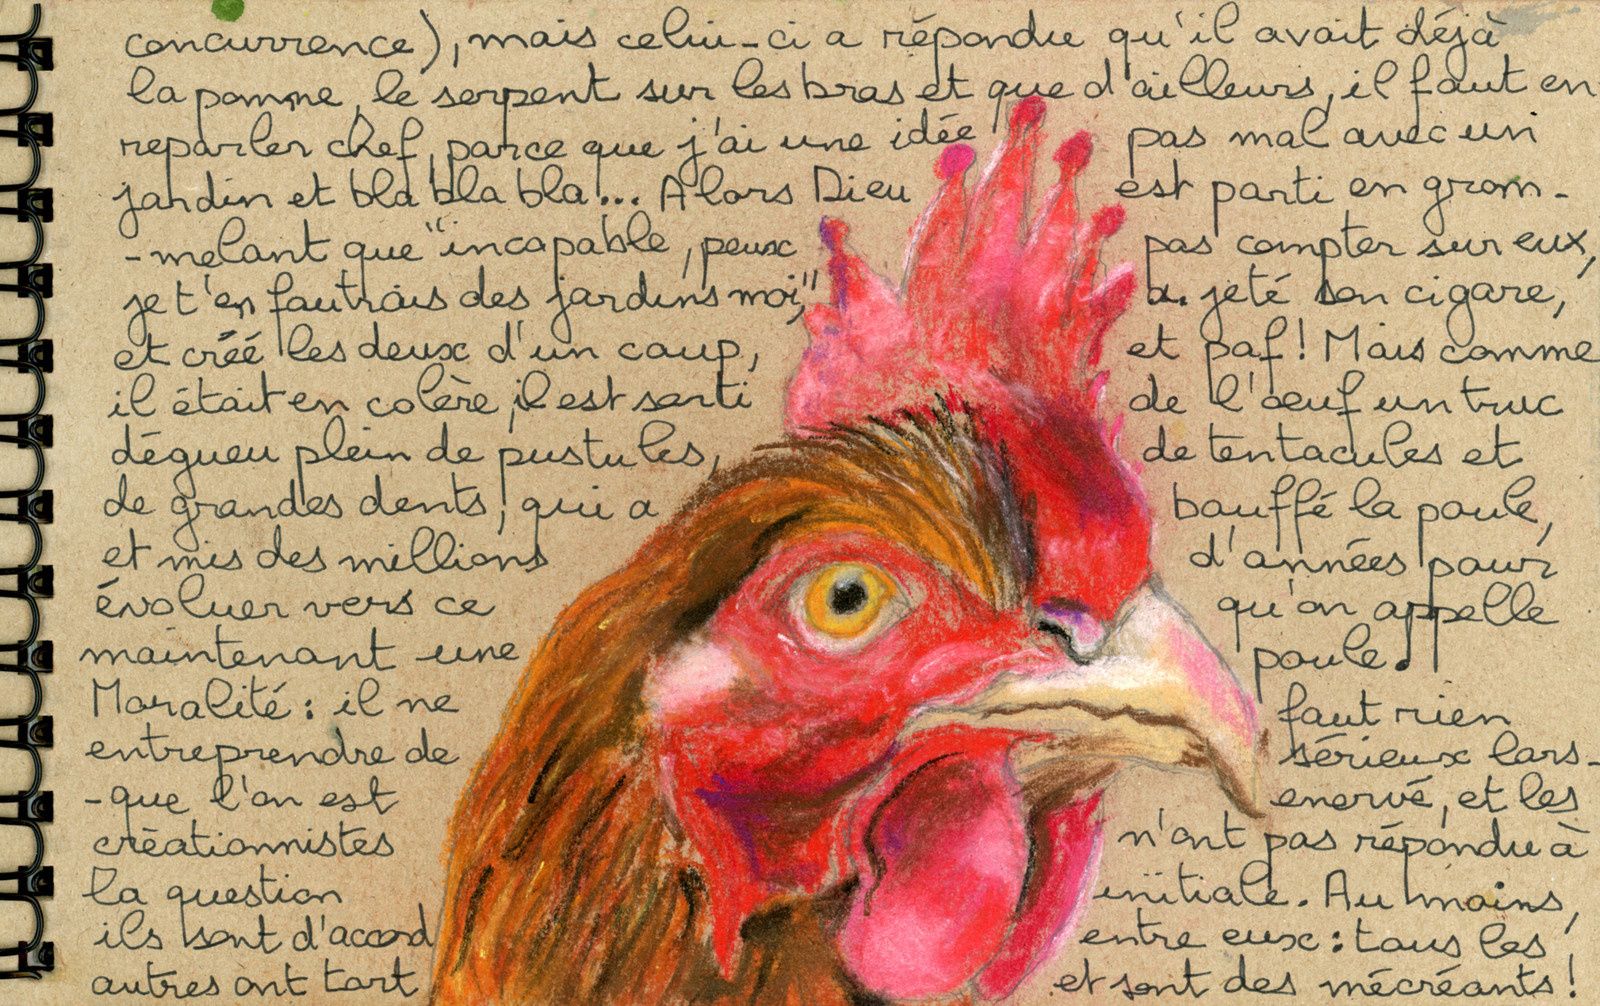 concurrence), mais celui-ci a répondu qu'il avait déjà
la pomme, le serpent sur les bras et que d'ailleurs, il faut en
reparler chef, parce que j'ai une idée pas mal avec un
jardin et bla bla bla... Alors Dieu est parti en grom-
-melant que "incapable, peux pas compter sur eux,
je t'en foutrais des jardins moi," a jeté son cigare,
et créé les deux d'un coup, et paf! Mais comme
il était en colère, il est sorti de l'oeuf un truc
dégueu plein de pustules, de tentacules et
de grandes dents, qui a bouffé la poule,
et mis des millions d'années pour
évoluer vers ce qu'on appelle
maintenant une poule.
Moralité: il ne faut rien
entreprendre de sérieux lors-
-que l'on est enervé, et les
créationnistes n'ont pas répondu à
la question initiale. Au moins,
ils sont d'accord entre eux: tous les
autres ont tort et sont des mécréants!